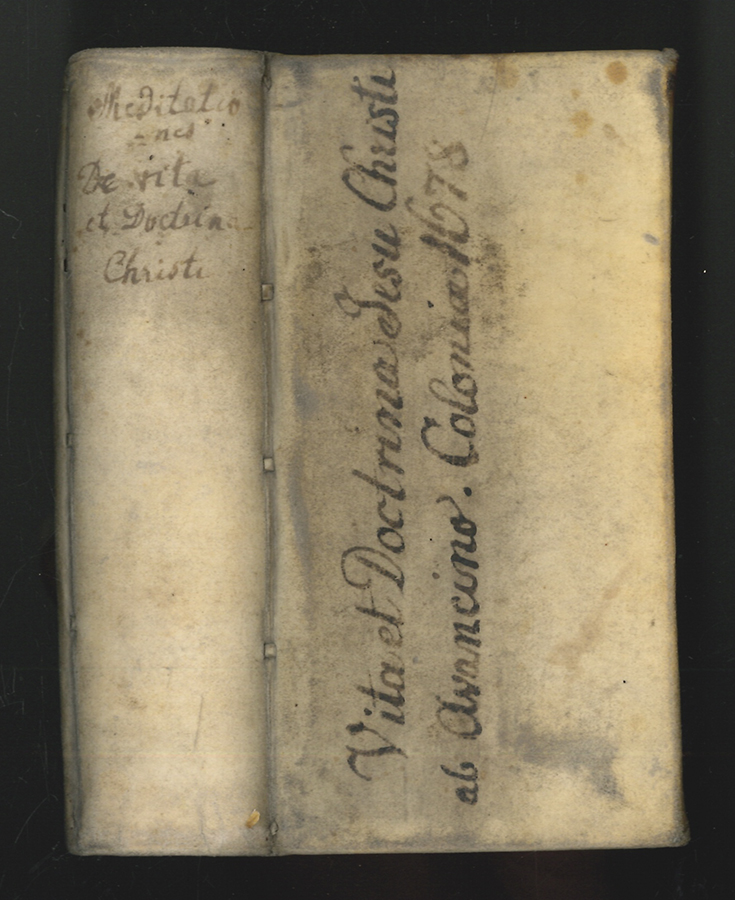 Meditatio
=nes
De vita
et Doctrina
Christi
Vita et Doctrina Jesu Christi
ab Avancino. Coloniæ 1678